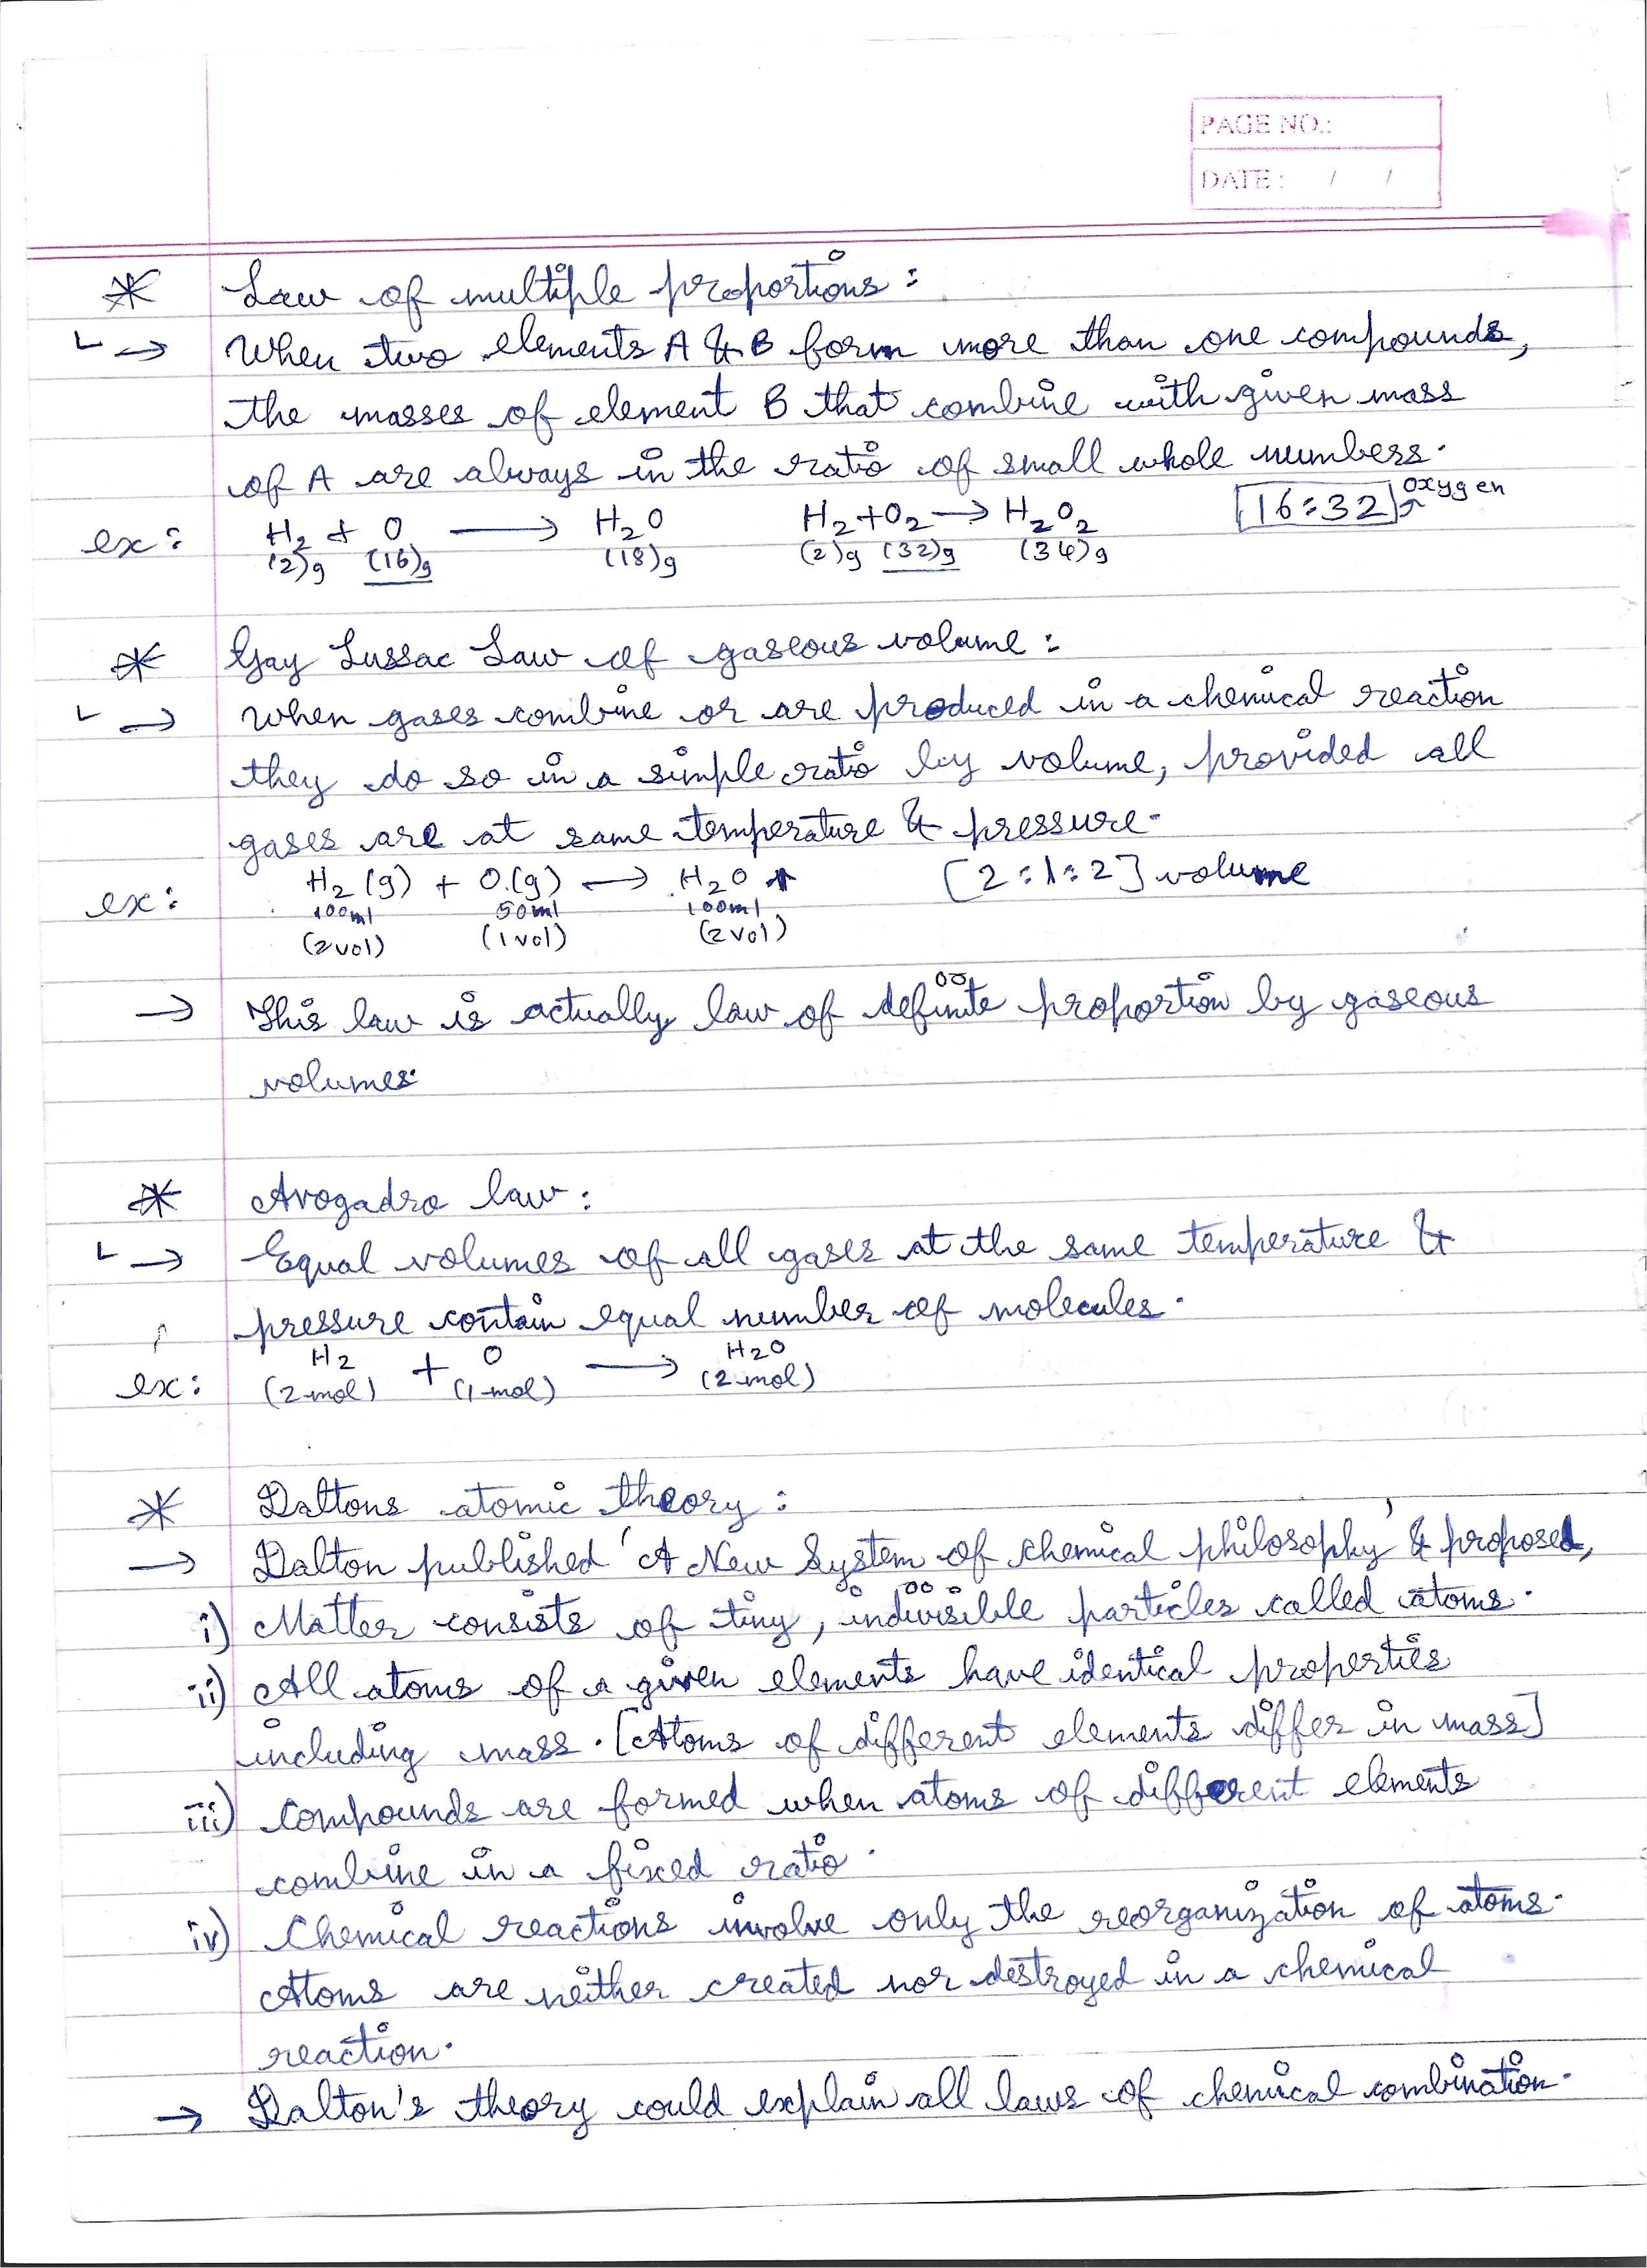 PAGE NO.:
DATE : / /
* Law of multiple proportions :
↳ → When two elements A & B form more than one compounds,
the masses of element B that combine with given mass
of A are always in the ratio of small whole numbers.
ex: H₂ + O ⟶ H₂O H₂+O₂ → H₂O₂ [16:32] oxygen
(2)g (16)g (18)g (2)g (32)g (34)g
* Gay Lussac Law of gaseous volume :
↳ → When gases combine or are produced in a chemical reaction
they do so in a simple ratio by volume, provided all
gases are at same temperature & pressure.
ex: H₂(g) + O(g) → H₂O ↑ [2:1:2] volume
100ml 50ml 100ml
(2vol) (1vol) (2vol)
→ This law is actually law of definite proportion by gaseous
volumes.
* Avogadro law :
↳ → Equal volumes of all gases at the same temperature &
pressure contain equal number of molecules.
ex: H₂ + O ⟶ H₂O
(2 mol) (1 mol) (2 mol)
* Daltons atomic theory :
→ Dalton published 'A New System of chemical philosophy' & proposed,
i) Matter consists of tiny, indivisible particles called atoms.
ii) All atoms of a given elements have identical properties
including mass. [Atoms of different elements differ in mass]
iii) Compounds are formed when atoms of different elements
combine in a fixed ratio.
iv) Chemical reactions involve only the reorganization of atoms.
Atoms are neither created nor destroyed in a chemical
reaction.
→ Dalton's theory could explain all laws of chemical combination.